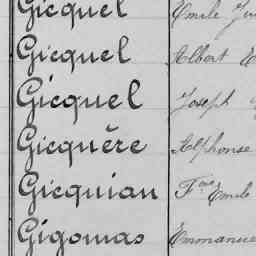 Gicquel Emile
Gicquel Albert
Gicquel Joseph
Gicquère Alphonse
Gicquian Fois Emile
Gigomas Emmanue